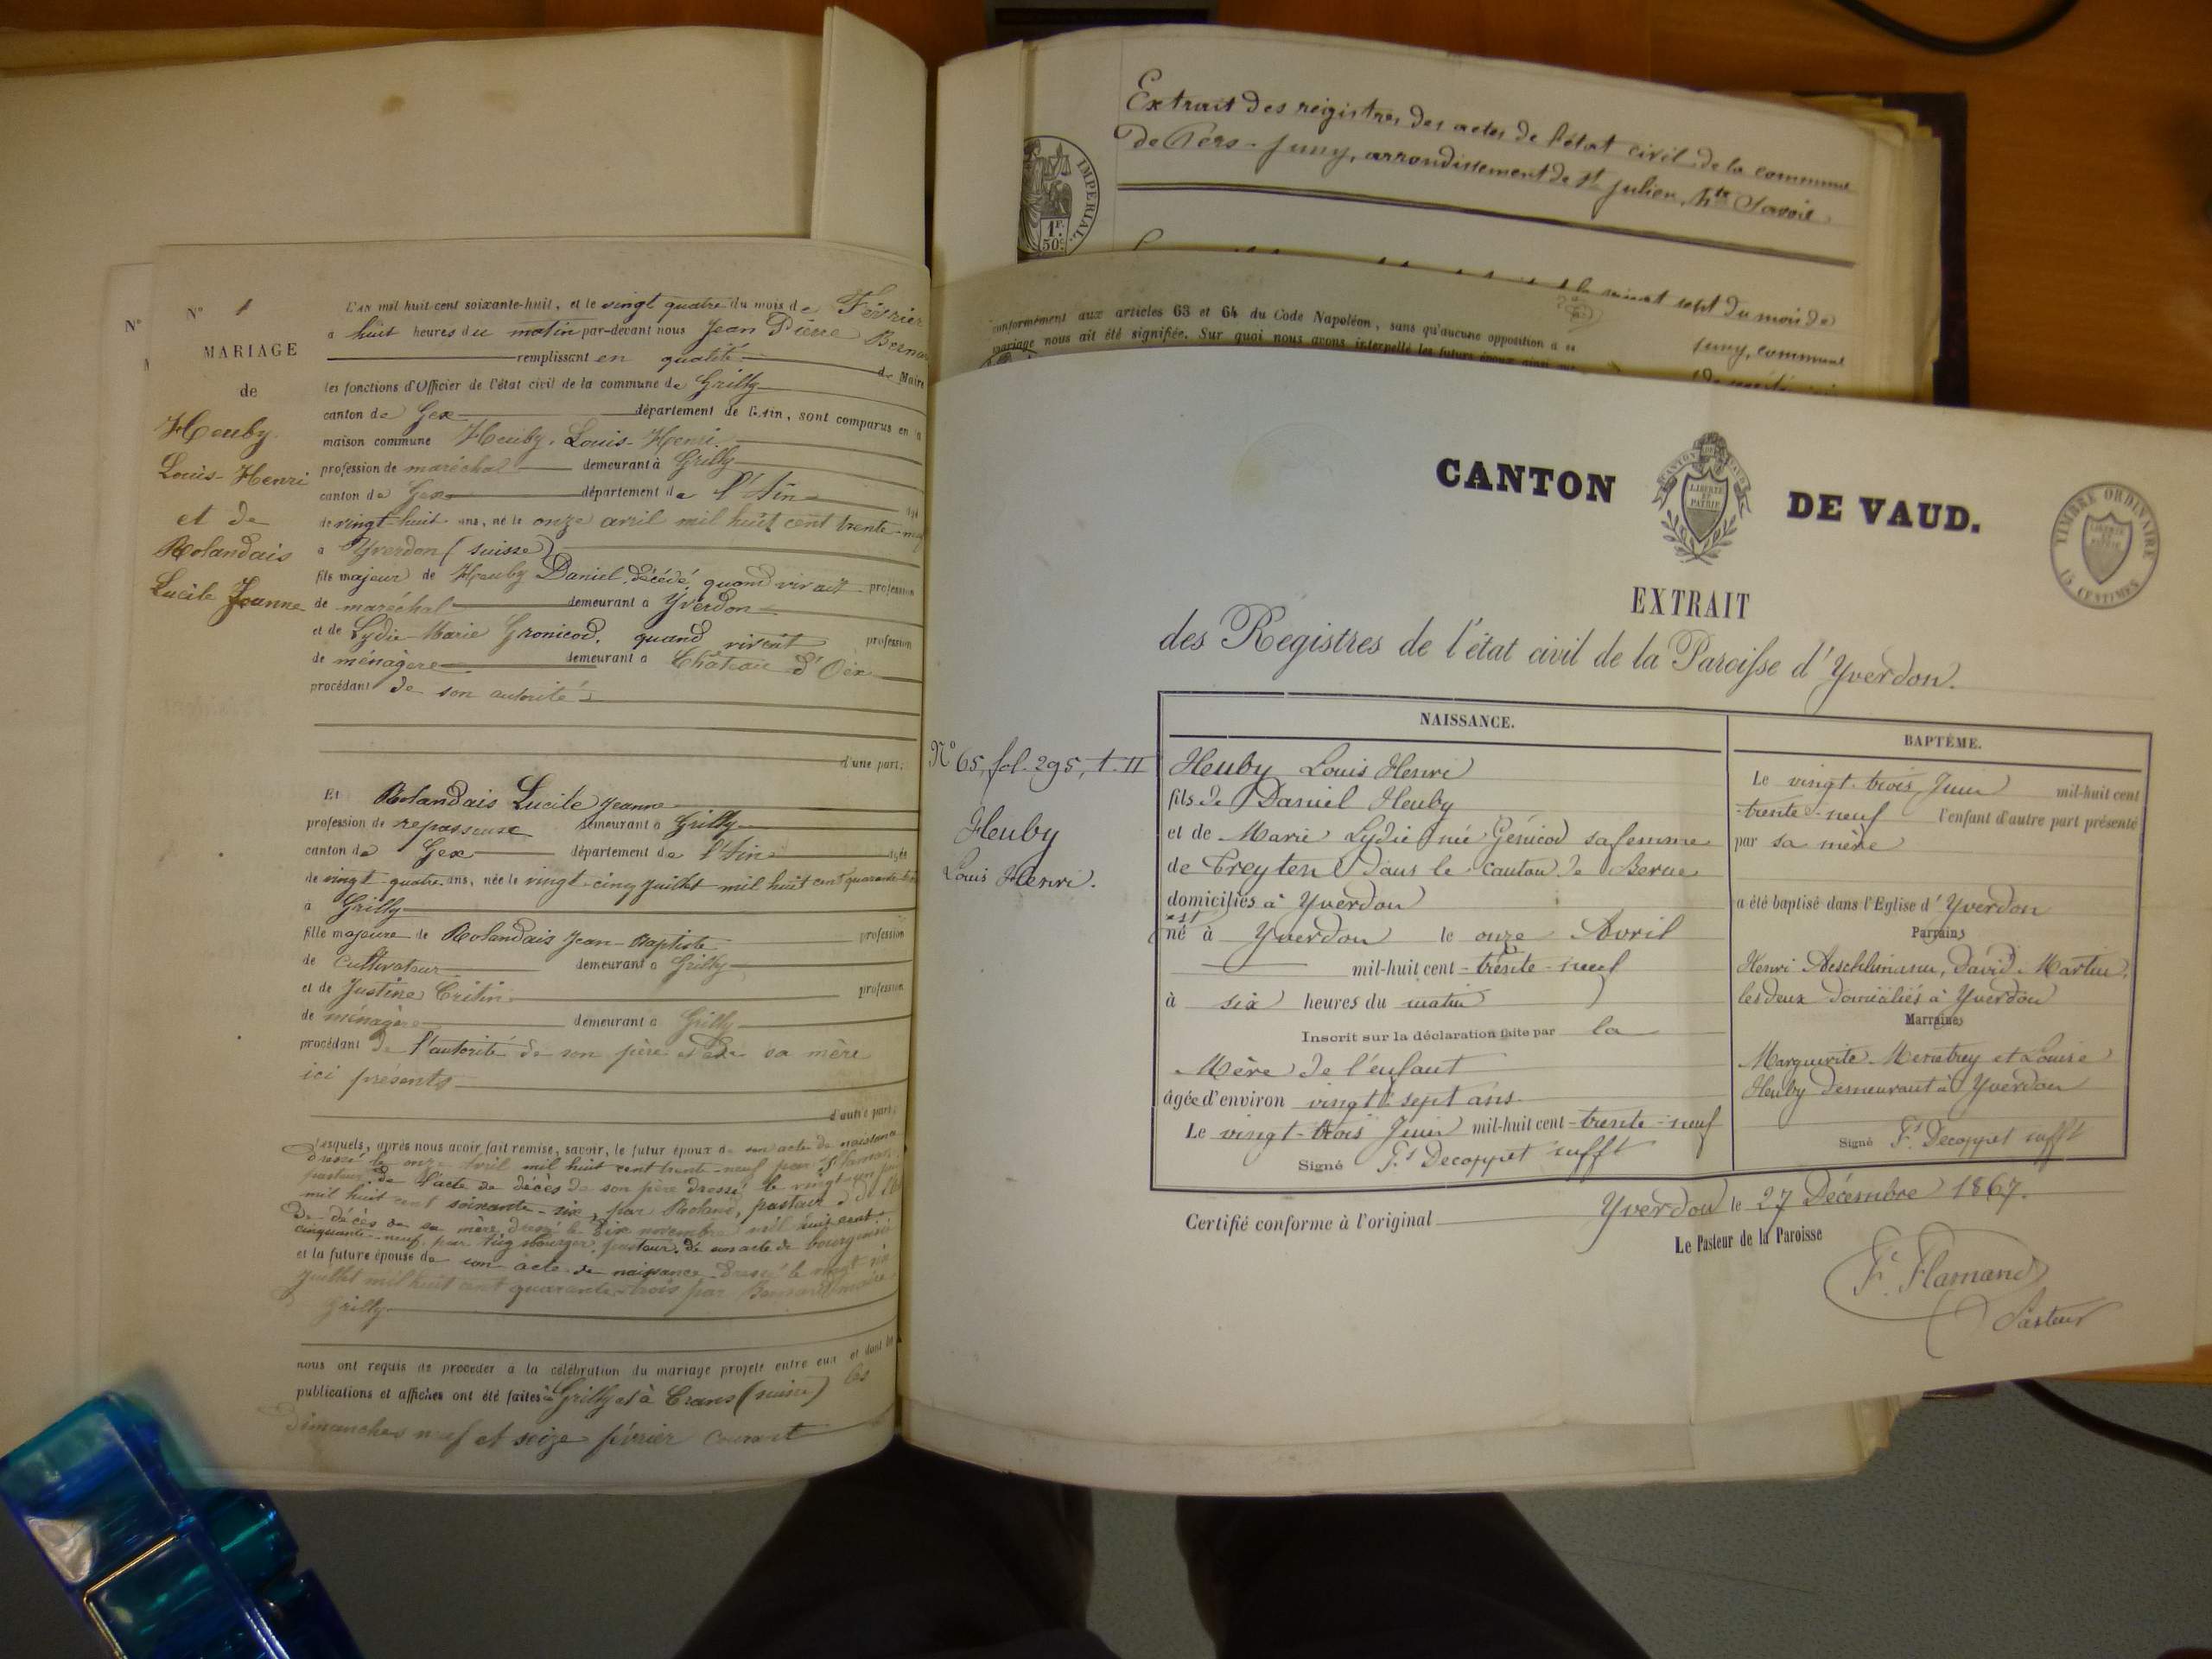 N°
N° 1
MARIAGE
de
Heuby
Louis-Henri
et de
Rolandais
Lucile Jeanne
L'AN mil huit cent soixante-huit, et le vingt quatre du mois de Février
à huit heures du matin par-devant nous Jean Pierre Bernar
remplissant en qualité de Maire
les fonctions d'Officier de l'état civil de la commune de Grilly
canton de Gex département de l'Ain, sont comparus en la
maison commune Heuby, Louis-Henri
profession de maréchal demeurant à Grilly
canton de Gex département de l'Ain
de vingt huit ans, né le onze avril mil huit cent trente-neuf
à Yverdon (suisse)
fils majeur de Heuby Daniel, décédé, quand vivait profession
de maréchal demeurant à Yverdon
et de Lydie-Marie Gronicod, quand vivait profession
de ménagère demeurant à Château d'Oex
procédant de son autorité
d'une part;
Et Rolandais Lucile Jeanne
profession de repasseuse demeurant à Grilly
canton de Gex département de l'Ain âgée
de vingt-quatre ans, née le vingt-cinq juillet mil huit cent quarante-trois
à Grilly
fille majeure de Rolandais Jean-Baptiste profession
de Cultivateur demeurant à Grilly
et de Justine Critin profession
de ménagère demeurant à Grilly
procédant de l'autorité de son père et de sa mère
ici présents
d'autre part;
Lesquels, après nous avoir fait remise, savoir, le futur époux de son acte de naissance
dressé le onze Avril mil huit cent trente-neuf par Flamand
pasteur de l'acte de décès de son père dressé le vingt
mil huit cent soixante-six, par Roland, pasteur
de décès de sa mère, dressé le dix novembre mil huit cent
cinquante-neuf par pasteur, de son acte de bourgeoisie
et la future épouse de son acte de naissance dressé le vingt six
Juillet mil huit cent quarante-trois par Bernard maire
Grilly
nous ont requis de procéder à la célébration du mariage projeté entre eux et dont les
publications et affiches ont été faites à Grilly et à Crans (suisse) les
Dimanches neuf et seize février courant
Extrait des régistres des actes de l'état civil de la commune
de Pers-Jussy, arrondissement de St Julien, Hte Savoie
IMPERIAL
1F.
50c.
vingt sept du mois de
Jussy, commune
conformément aux articles 63 et 64 du Code Napoléon, sans qu'aucune opposition à
mariage nous ait été signifiée. Sur quoi nous avons interpellé les futurs époux
CANTON DE VAUD.
CANTON DE VAUD
LIBERTÉ ET PATRIE
TIMBRE ORDINAIRE
LIBERTÉ ET PATRIE
15 CENTIMES
EXTRAIT
des Registres de l'état civil de la Paroisse d'Yverdon.
N° 65, fol. 295, t. II
Heuby
Louis Henri.
NAISSANCE.
Heuby Louis Henri
fils de Daniel Heuby
et de Marie Lydie née Génicod sa femme
de Treyten dans le Canton de Berne
domiciliés à Yverdon
est
né à Yverdon le onze Avril
mil-huit cent-trente-neuf
à six heures du matin
Inscrit sur la déclaration faite par la
Mère de l'enfant
âgée d'environ vingt-sept ans.
Le vingt-trois Juin mil-huit cent-trente-neuf
Signé Fs Decoppet sufft
BAPTÊME.
Le vingt-trois Juin mil-huit cent
-trente-neuf l'enfant d'autre part présenté
par sa mère
a été baptisé dans l'Eglise d'Yverdon
Parrains
Henri Aeschlimann, David Martin,
les deux domiciliés à Yverdon
Marraines
Marguerite Menetrey et Louise
Heuby demeurant à Yverdon
Signé Fs Decoppet sufft
Certifié conforme à l'original Yverdon le 27 Décembre 1867.
Le Pasteur de la Paroisse
F. Flamand
Pasteur